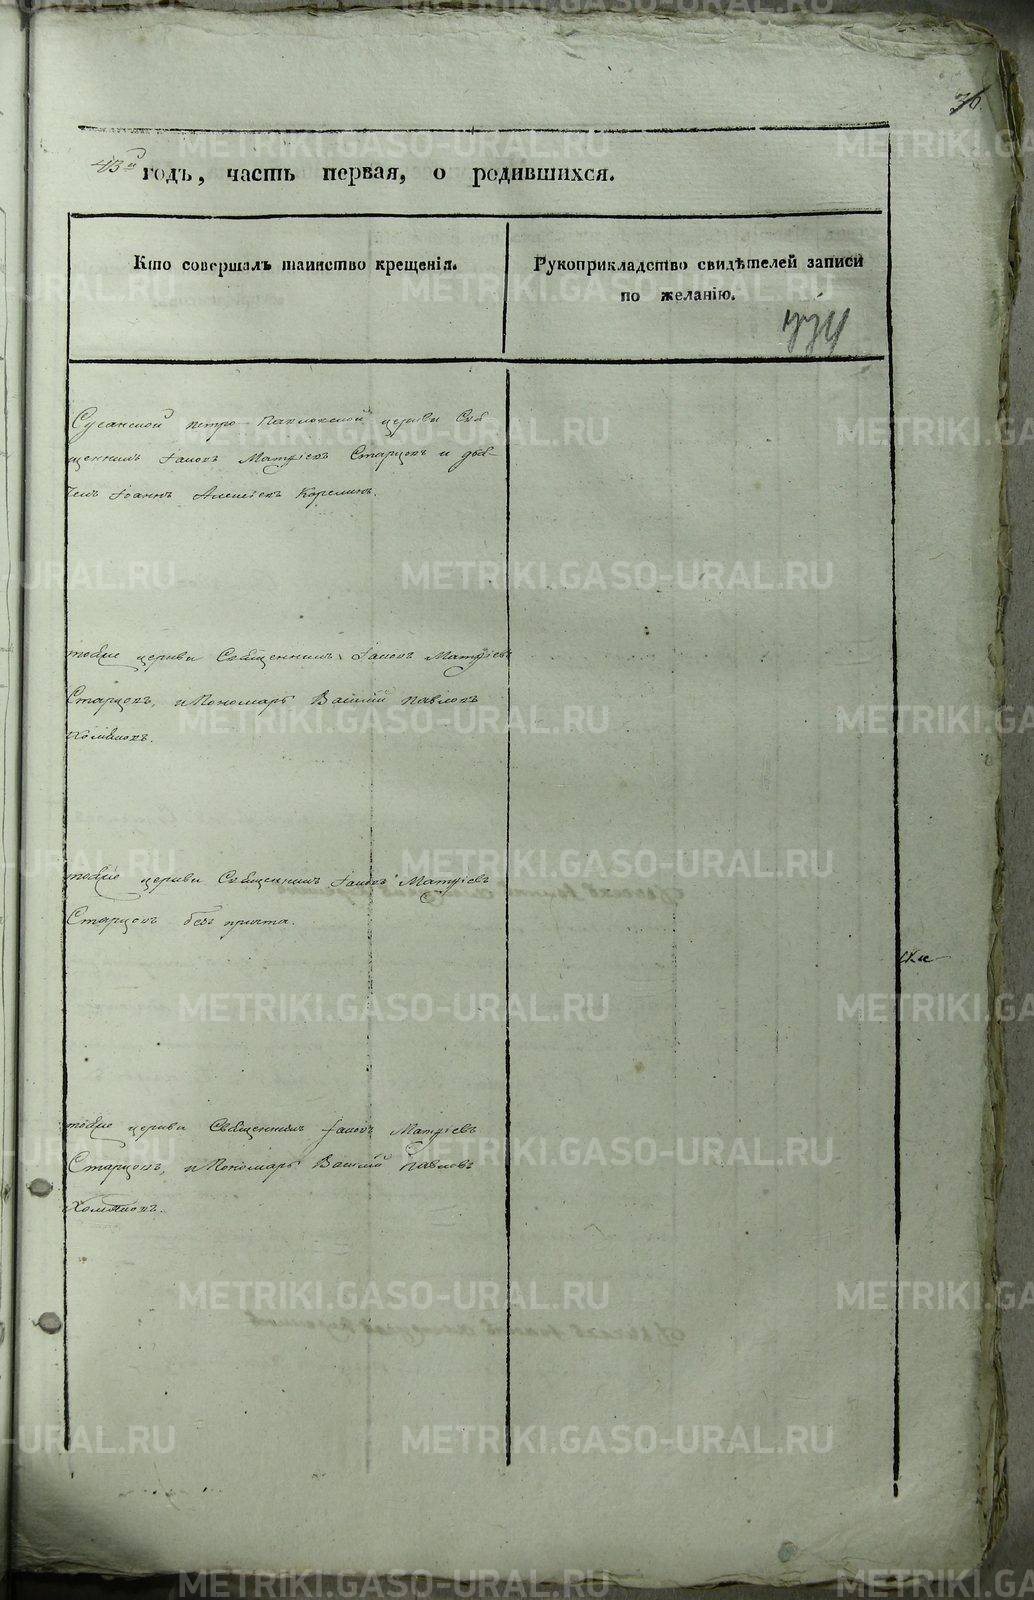 36.
43й годъ, часть первая, о родившихся.
Кто совершалъ таинство крещенія.
Рукоприкладство свидѣтелей записи
по желанію.
774
Сусанской Петро-Павловской церкви Свя
щенникъ Іаковъ Матѳіевъ Старцовъ и дья-
Іоаннъ Алексѣевъ
тойже церкви Священникъ Іаковъ Матѳіевъ
Старцовъ, и Пономарь Василій Павловъ
тойже церкви Священникъ Іаковъ Матѳіевъ
Старцовъ безъ причта.
тойже церкви Священникъ Іаковъ Матѳіевъ
Старцовъ, и Пономарь Василій Павловъ
METRIKI.GASO-URAL.RU